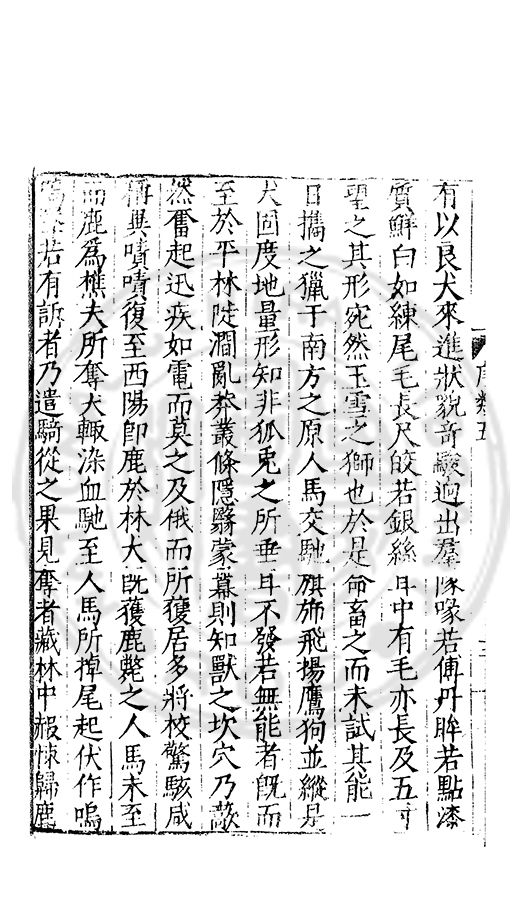 有以良犬來進狀貌奇駿迥出羣隊喙若傅丹眸若點漆
質鮮白如練尾毛長尺皎若銀絲耳中有毛亦長及五寸
望之其形宛然玉雪之獅也於是命畜之而未試其能一
日攜之獵于南方之原人馬交馳旗旆飛揚鷹狗並縱是
犬固度地量形知非狐兎之所垂耳不發若無能者旣而
至於平林陡澗亂莽叢條隱翳蒙冪則知獸之坎穴乃歘
然奮起迅疾如電而莫之及俄而所獲居多將校驚駭咸
稱異嘖嘖復至西陽卽鹿於林犬旣獲鹿斃之人馬未至
而鹿爲樵夫所奪犬輙染血馳至人馬所掉尾起伏作嗚
若有訴者乃遣騎從之果見奪者藏林中赧悚歸鹿
序類五